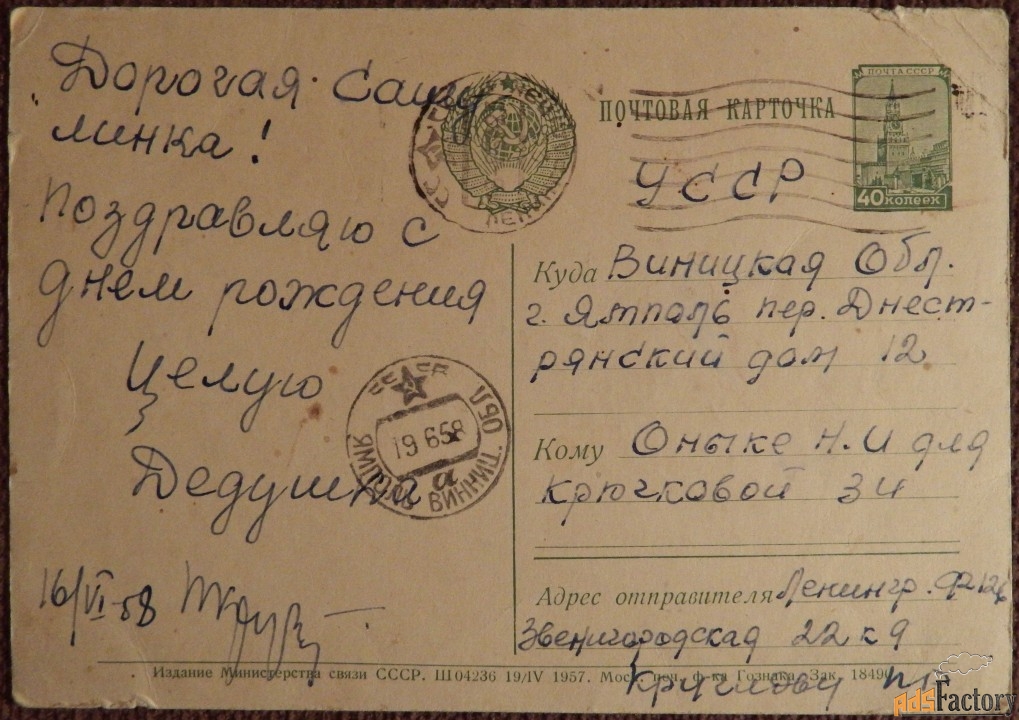 Дорогая Сашу
линка!
Поздравляю с
днем рождения
Целую
Дедушка
16/VI-58
ПОЧТОВАЯ КАРТОЧКА
ПОЧТА СССР
40 копеек
УССР
Куда Виницкая Обл.
г. Ямполь пер. Днест-
рянский дом 12
Кому Оныке Н.И для
Крючковой ЗИ
Адрес отправителя Ленингр.
Звенигородская 22 к 9
Круглову
СССР
19 6 58
а
ЯМПОЛЬ ВИННИЦ. ОБЛ
Издание Министерства связи СССР. Ш 04236 19/IV 1957. Моск. печ. ф-ка Гознака. Зак. 18490
AdsFactory